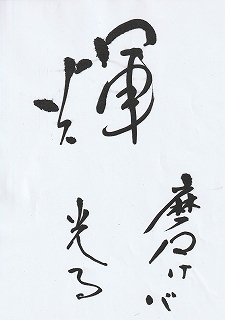 輝
磨けば
光る